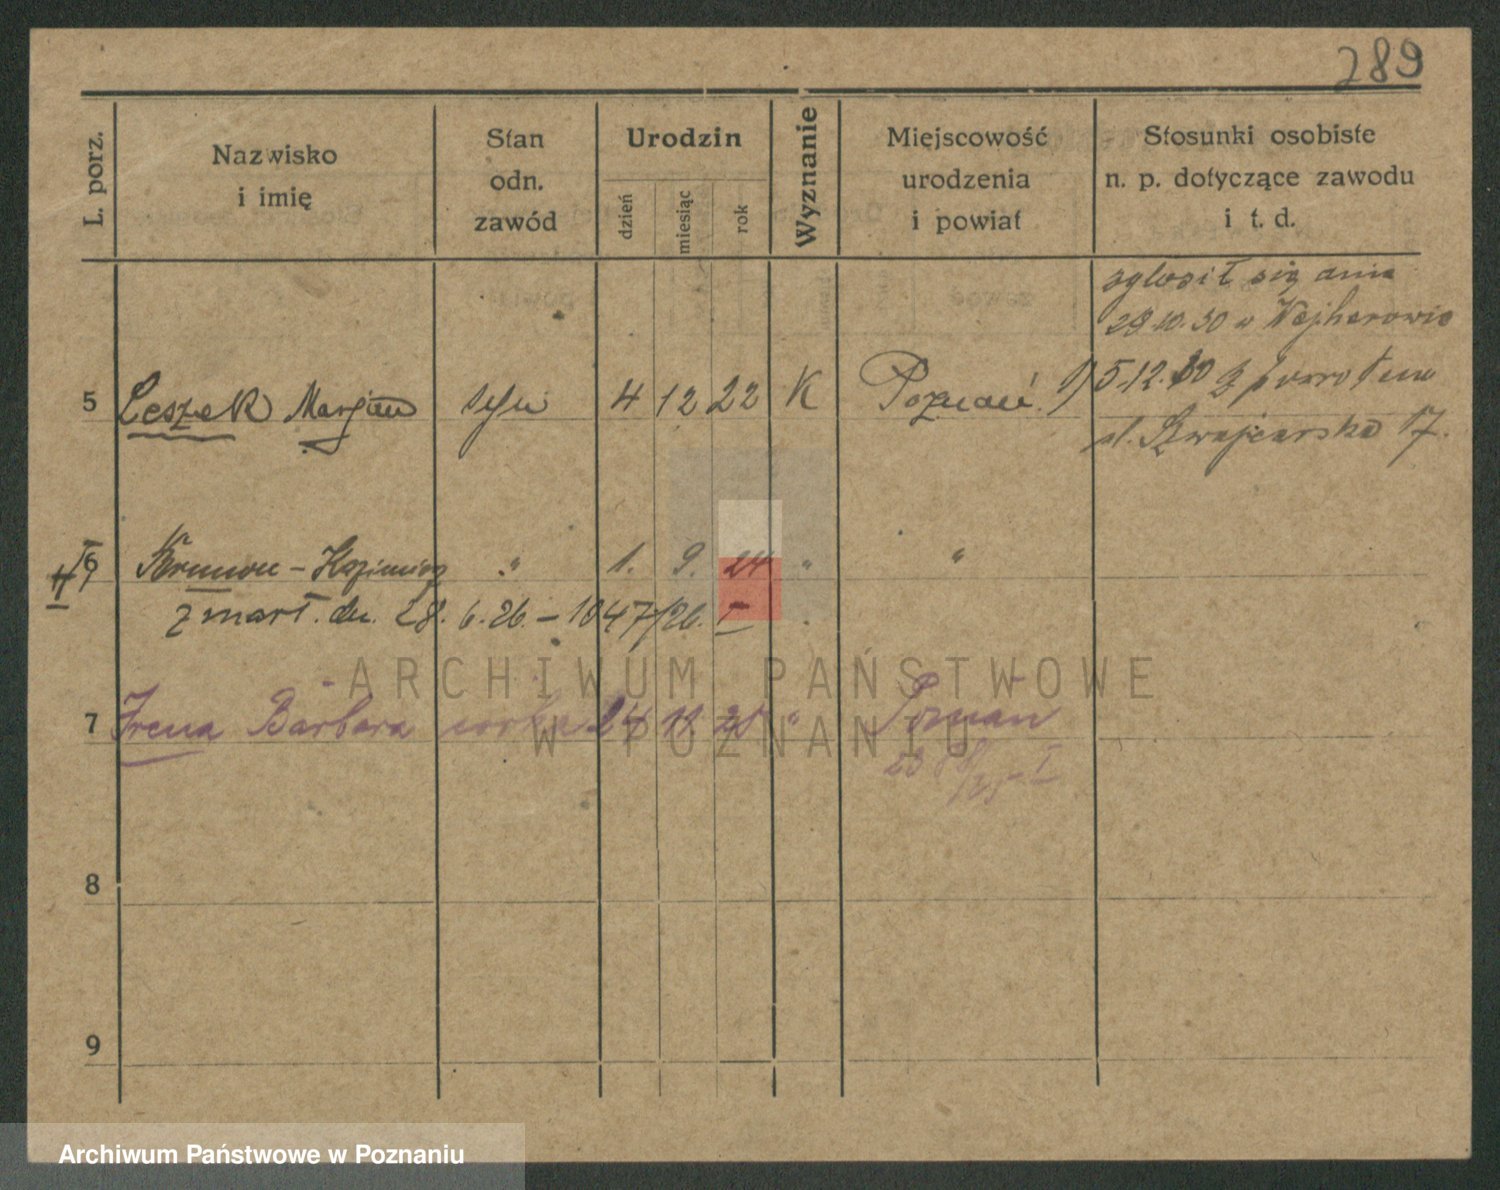 289
L. porz.
Nazwisko
i imię
Stan
odn.
zawód
Urodzin
dzień
miesiąc
rok
Wyznanie
Miejscowość
urodzenia
i powiat
Stosunki osobiste
n. p. dotyczące zawodu
i t. d.
zglosił się dnia
28.10.30 w Wejherowie
5 Leszek Marjan syn 4 12 22 K Poznań. 1) 5.12.30 z powrotem
ul. 17.
6 Kazimierz " 1. 9. 24 " "
zmarł. dn. 28. 6. 26. – 1047/26. I
7 Irena Barbara córka 24 11. 25 " Poznań
I
8
9
ARCHIWUM PAŃSTWOWE
W POZNANIU
Archiwum Państwowe w Poznaniu